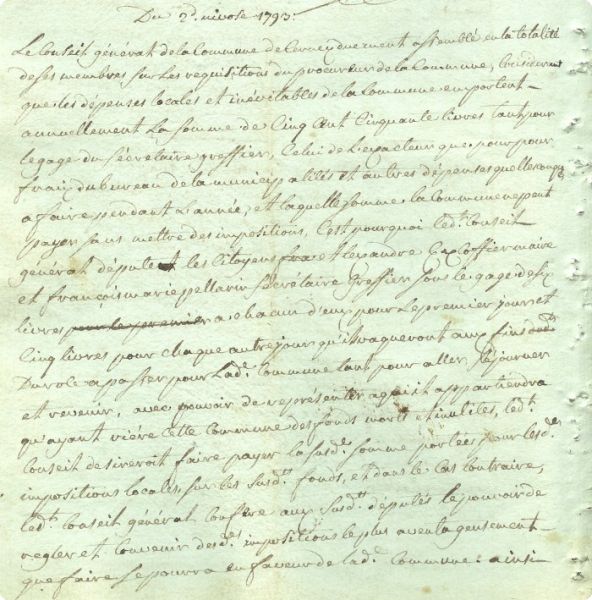 Du 2.d nivose 1793:
Le Conseil général de la Commune de Cerney duement assemblé en la totalité
de ses membres sur Les requisitions du procureur de la Commune, Considerant
que les dépenses locales et inévitables de la Commune emportent
annuellement La Somme de Cinq Cent Cinquante livres tant pour
le gage du Sécrétaire greffier, Celui de L'exacteur que pour
frais du bureau de la municipalité et autres dépenses quelconques
a faire pendant L'année, et laquelle Somme la Commune ne peut
payer Sans mettre des impositions, C'est pourquoi led.t Conseil
général députe les Citoyens Alexandre Coffier maire
et françois marie pellarin Sécrétaire Greffier Sous le gage de Six
livres pour le premier a chacun d'eux pour le premier jour et
Cinq livres pour chaque autre jour qu'ils vaqueront aux fins
Du role a passer pour Lad.e Commune tant pour aller, Séjourner
et revenir, avec pouvoir de représenter a qui il appartiendra
qu'ayant rière Cette Commune des fonds morts et inutiles, led.t
Conseil desireroit faire payer la susd.e Somme portées pour lesd.es
impositions locales, sur les susd.ts fonds, et dans le Cas Contraire,
led.t Conseil général Confere aux Susd.ts députés le pouvoir de
regler et Convenir desd.es impositions le plus aventageusement
que faire Se pourra en faveur de lad.e Commune: ainsi